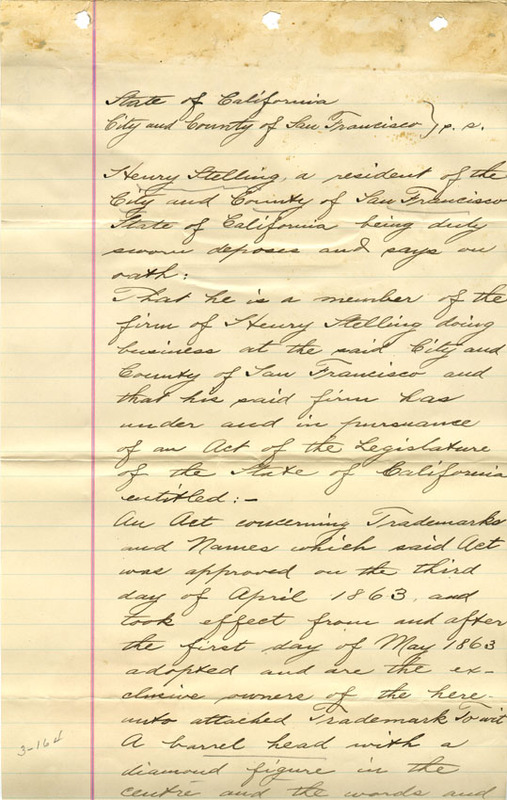 State of California
City and County of San Francisco } s. s.
Henry Stelling, a resident of the
City and County of San Francisco
State of California being duly
sworn deposes and says on
oath:
That he is a member of the
firm of Henry Stelling doing
business at the said City and
County of San Francisco and
that his said firm has
under and in pursuance
of an Act of the Legislature
of the State of California
entitled:-
An Act concerning Trademarks
and Names which said Act
was approved on the third
day of April 1863, and
took effect from and after
the first day of May 1863
adopted and are the ex-
clusive owners of the here-
unto attached Trademark To wit
A barrel head with a
diamond figure in the
centre and the words and
3-16